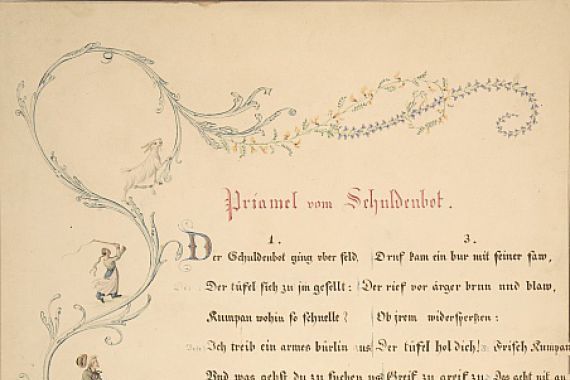 Priamel vom Schuldenbot.
1.
Der Schuldenbot ging vber feld,
Der tüfel sich zu jm gesellt:
Kumpan wohin so schnelle?
Ich treib ein armes bürlin us
Vnd was gehst du zu suchen us
3.
Druf kam ein bur mit seiner saw,
Der rief vor ärger brun und blaw,
Ob jrem widersperßen:
Der tüfel hol dich! Frisch, Kumpan
Greif zu greif zu